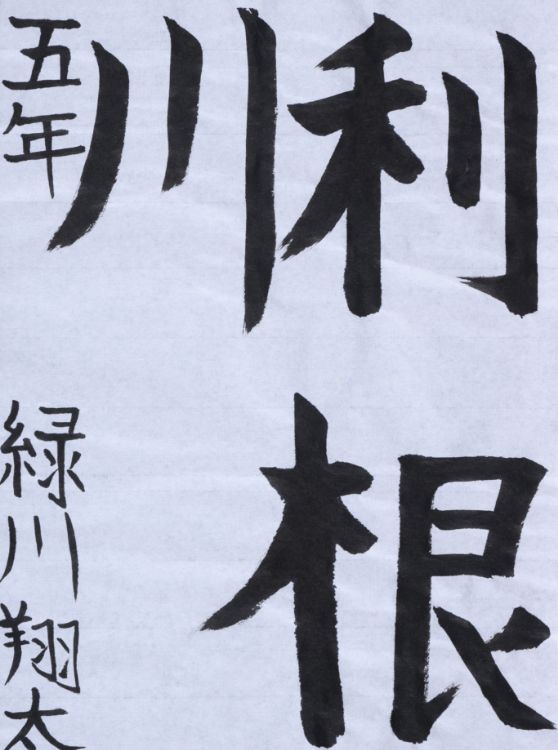 利根
川
五年 緑川翔太